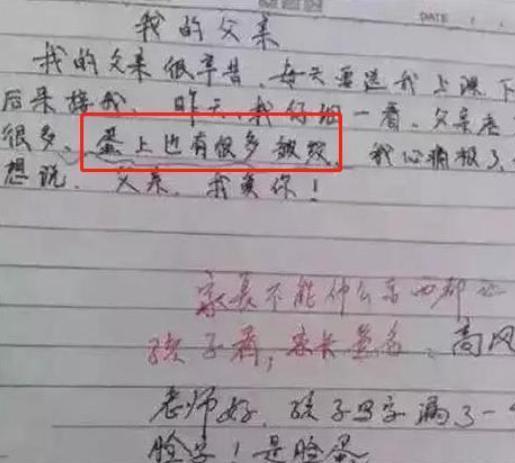 DATE
我的父亲
我的父亲很辛苦、每天要送我上课下
后来接我、昨天、我仔细一看、父亲老
很多、蛋上也有很多皱纹、我心痛极了、
想说、父亲、我爱你！
家长不能什么东西都让
孩子看，家长签名、高风
老师好、孩子写字漏了一个
脸字！是脸蛋